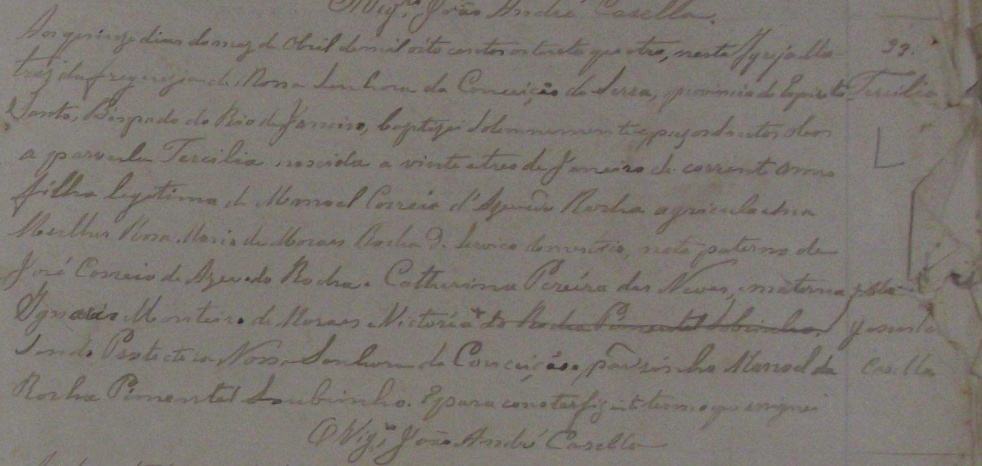 O Vigrº João André Casella.
Aos quinze dias do mez de Abril de mil oito centos oitenta quatro, nesta Igreja Ma 99.
triz da freguezia de Nossa Senhora da Conceição da Serra, provincia do Espirito Tercilia
Santo, Bispado do Rio de Janeiro, baptizei solemnemente e puz os santos oleos
a parvula Tercilia nascida a vinte e tres de Janeiro do corrent anno
filha legitima de Manoel Correia d'Azevedo Rocha agricula e sua
Mulher Rosa Maria de Moraes Rocha de servico domestico, neta paterna de
José Correio de Azevedo Rocha e Catherina Pereira das Neves, materna
Ignacio Monteiro de Moraes e Victória da Rocha Pimentel Sobrinho,
Sendo Protectora Nossa Senhora da Conceição, padrinho Manoel da Casella
Rocha Pimentel Soubrinho. E para constar fiz este termo que assignei
O Vigrº João André Casella